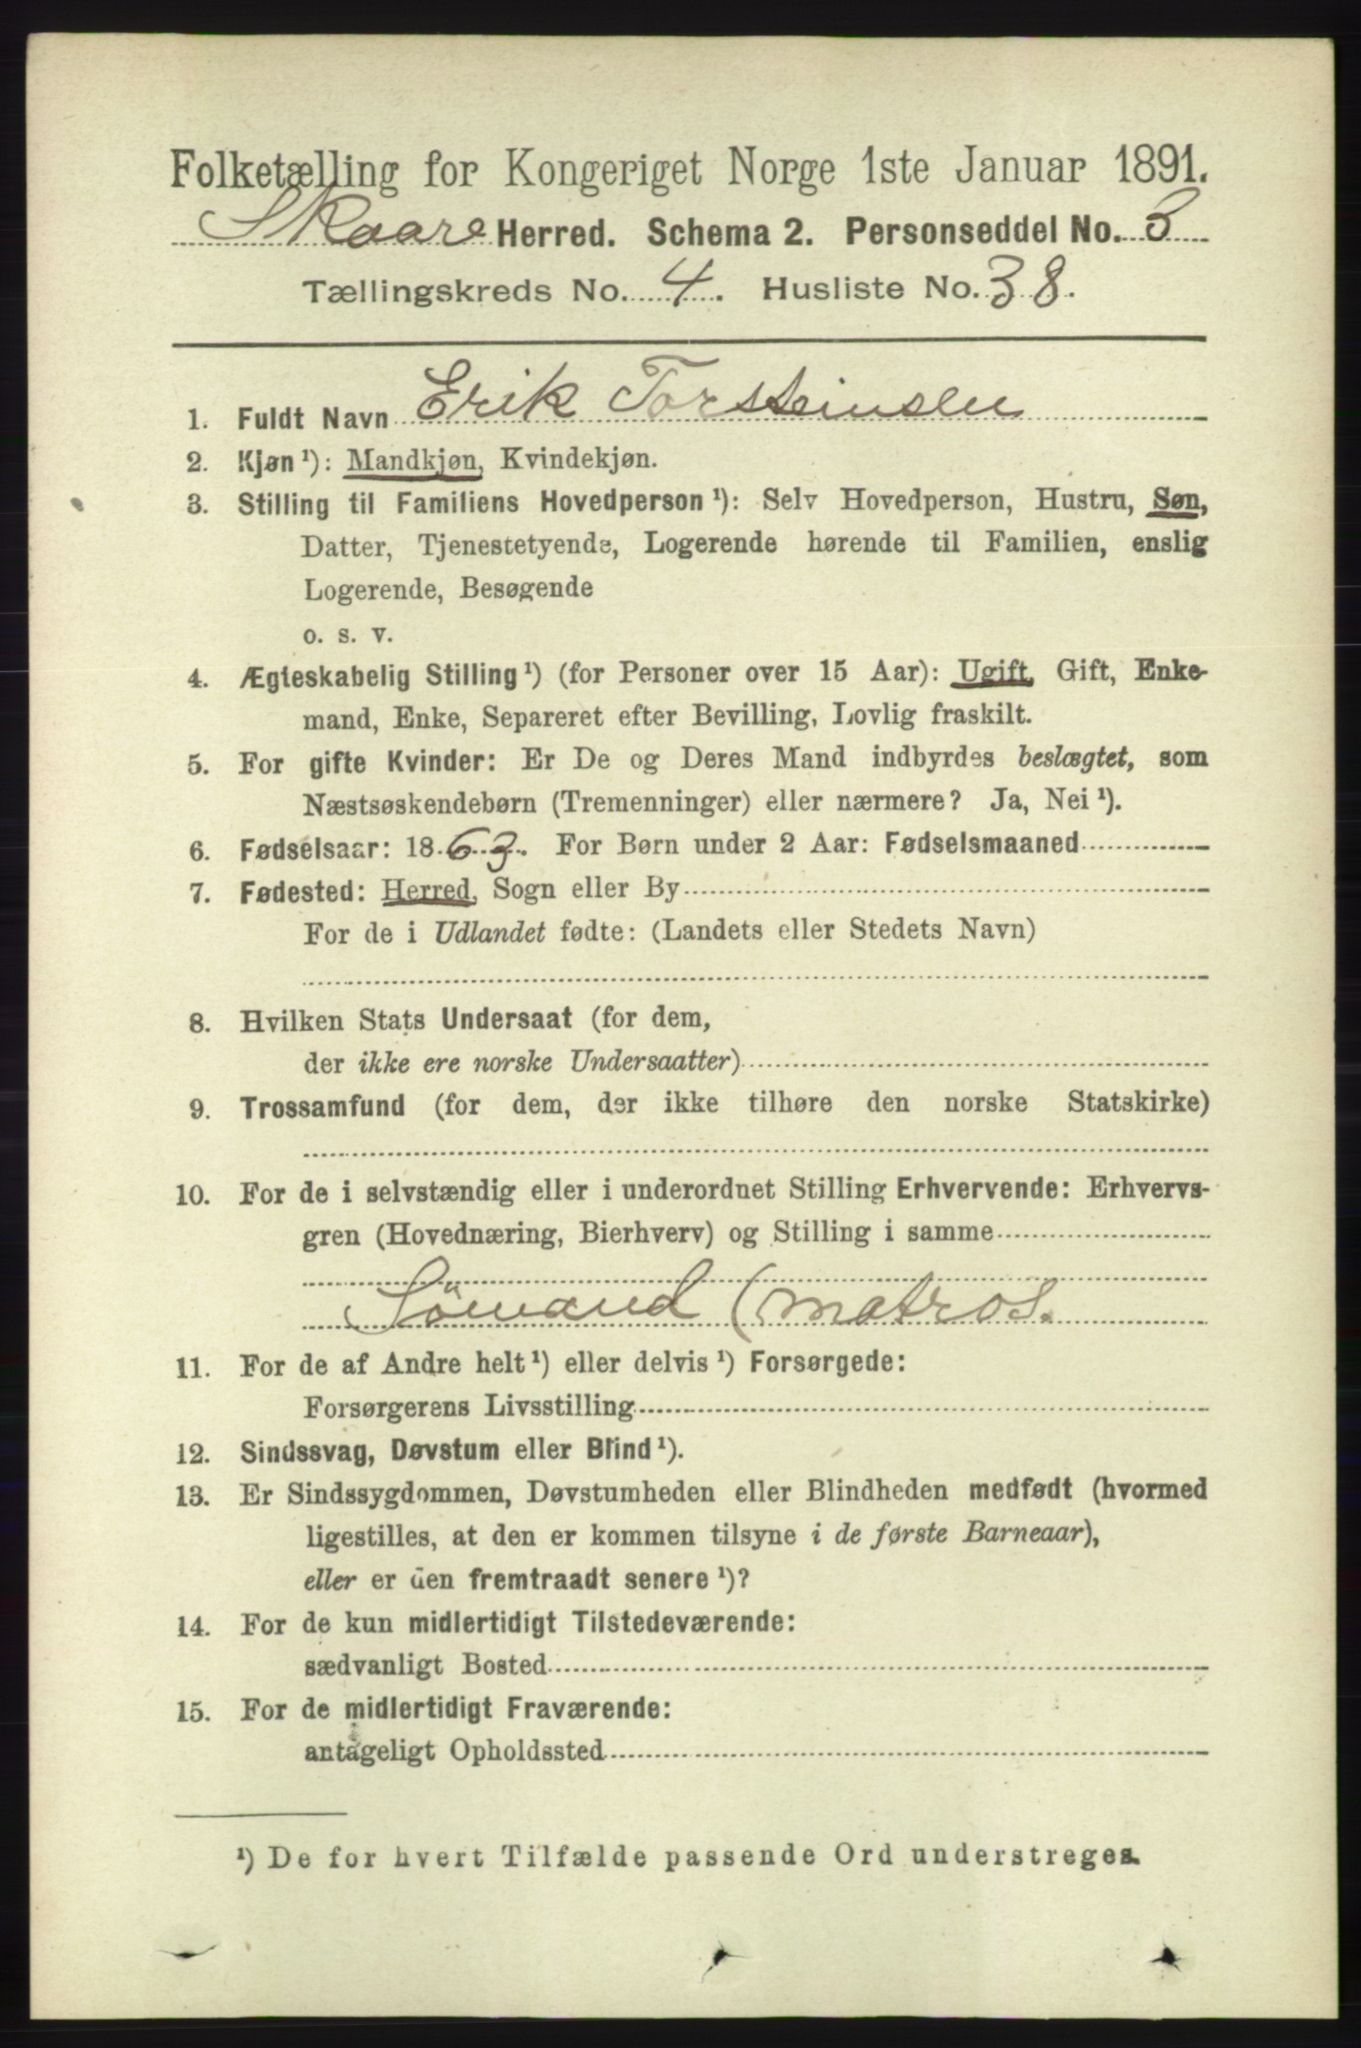 Folketælling for Kongeriget Norge 1ste Januar 1891.
Skaare Herred. Schema 2. Personseddel No. 3
Tællingskreds No. 4. Husliste No. 38.
1. Fuldt Navn Erik Torsteinsen
2. Kjøn ¹): Mandkjøn, Kvindekjøn.
3. Stilling til Familiens Hovedperson ¹): Selv Hovedperson, Hustru, Søn,
Datter, Tjenestetyende, Logerende hørende til Familien, enslig
Logerende, Besøgende
o. s. v.
4. Ægteskabelig Stilling ¹) (for Personer over 15 Aar): Ugift, Gift, Enke-
mand, Enke, Separeret efter Bevilling, Lovlig fraskilt.
5. For gifte Kvinder: Er De og Deres Mand indbyrdes beslægtet, som
Næstsøskendebørn (Tremenninger) eller nærmere? Ja, Nei ¹).
6. Fødselsaar: 1863. For Børn under 2 Aar: Fødselsmaaned
7. Fødested: Herred, Sogn eller By
For de i Udlandet fødte: (Landets eller Stedets Navn)
8. Hvilken Stats Undersaat (for dem,
der ikke ere norske Undersaatter)
9. Trossamfund (for dem, der ikke tilhøre den norske Statskirke)
10. For de i selvstændig eller i underordnet Stilling Erhvervende: Erhvervs-
gren (Hovednæring, Bierhverv) og Stilling i samme
Sömand (matros.
11. For de af Andre helt ¹) eller delvis ¹) Forsørgede:
Forsørgerens Livsstilling
12. Sindssvag, Døvstum eller Blind ¹).
13. Er Sindssygdommen, Døvstumheden eller Blindheden medfødt (hvormed
ligestilles, at den er kommen tilsyne i de første Barneaar),
eller er den fremtraadt senere ¹)?
14. For de kun midlertidigt Tilstedeværende:
sædvanligt Bosted
15. For de midlertidigt Fraværende:
antageligt Opholdssted
¹) De for hvert Tilfælde passende Ord understreges.